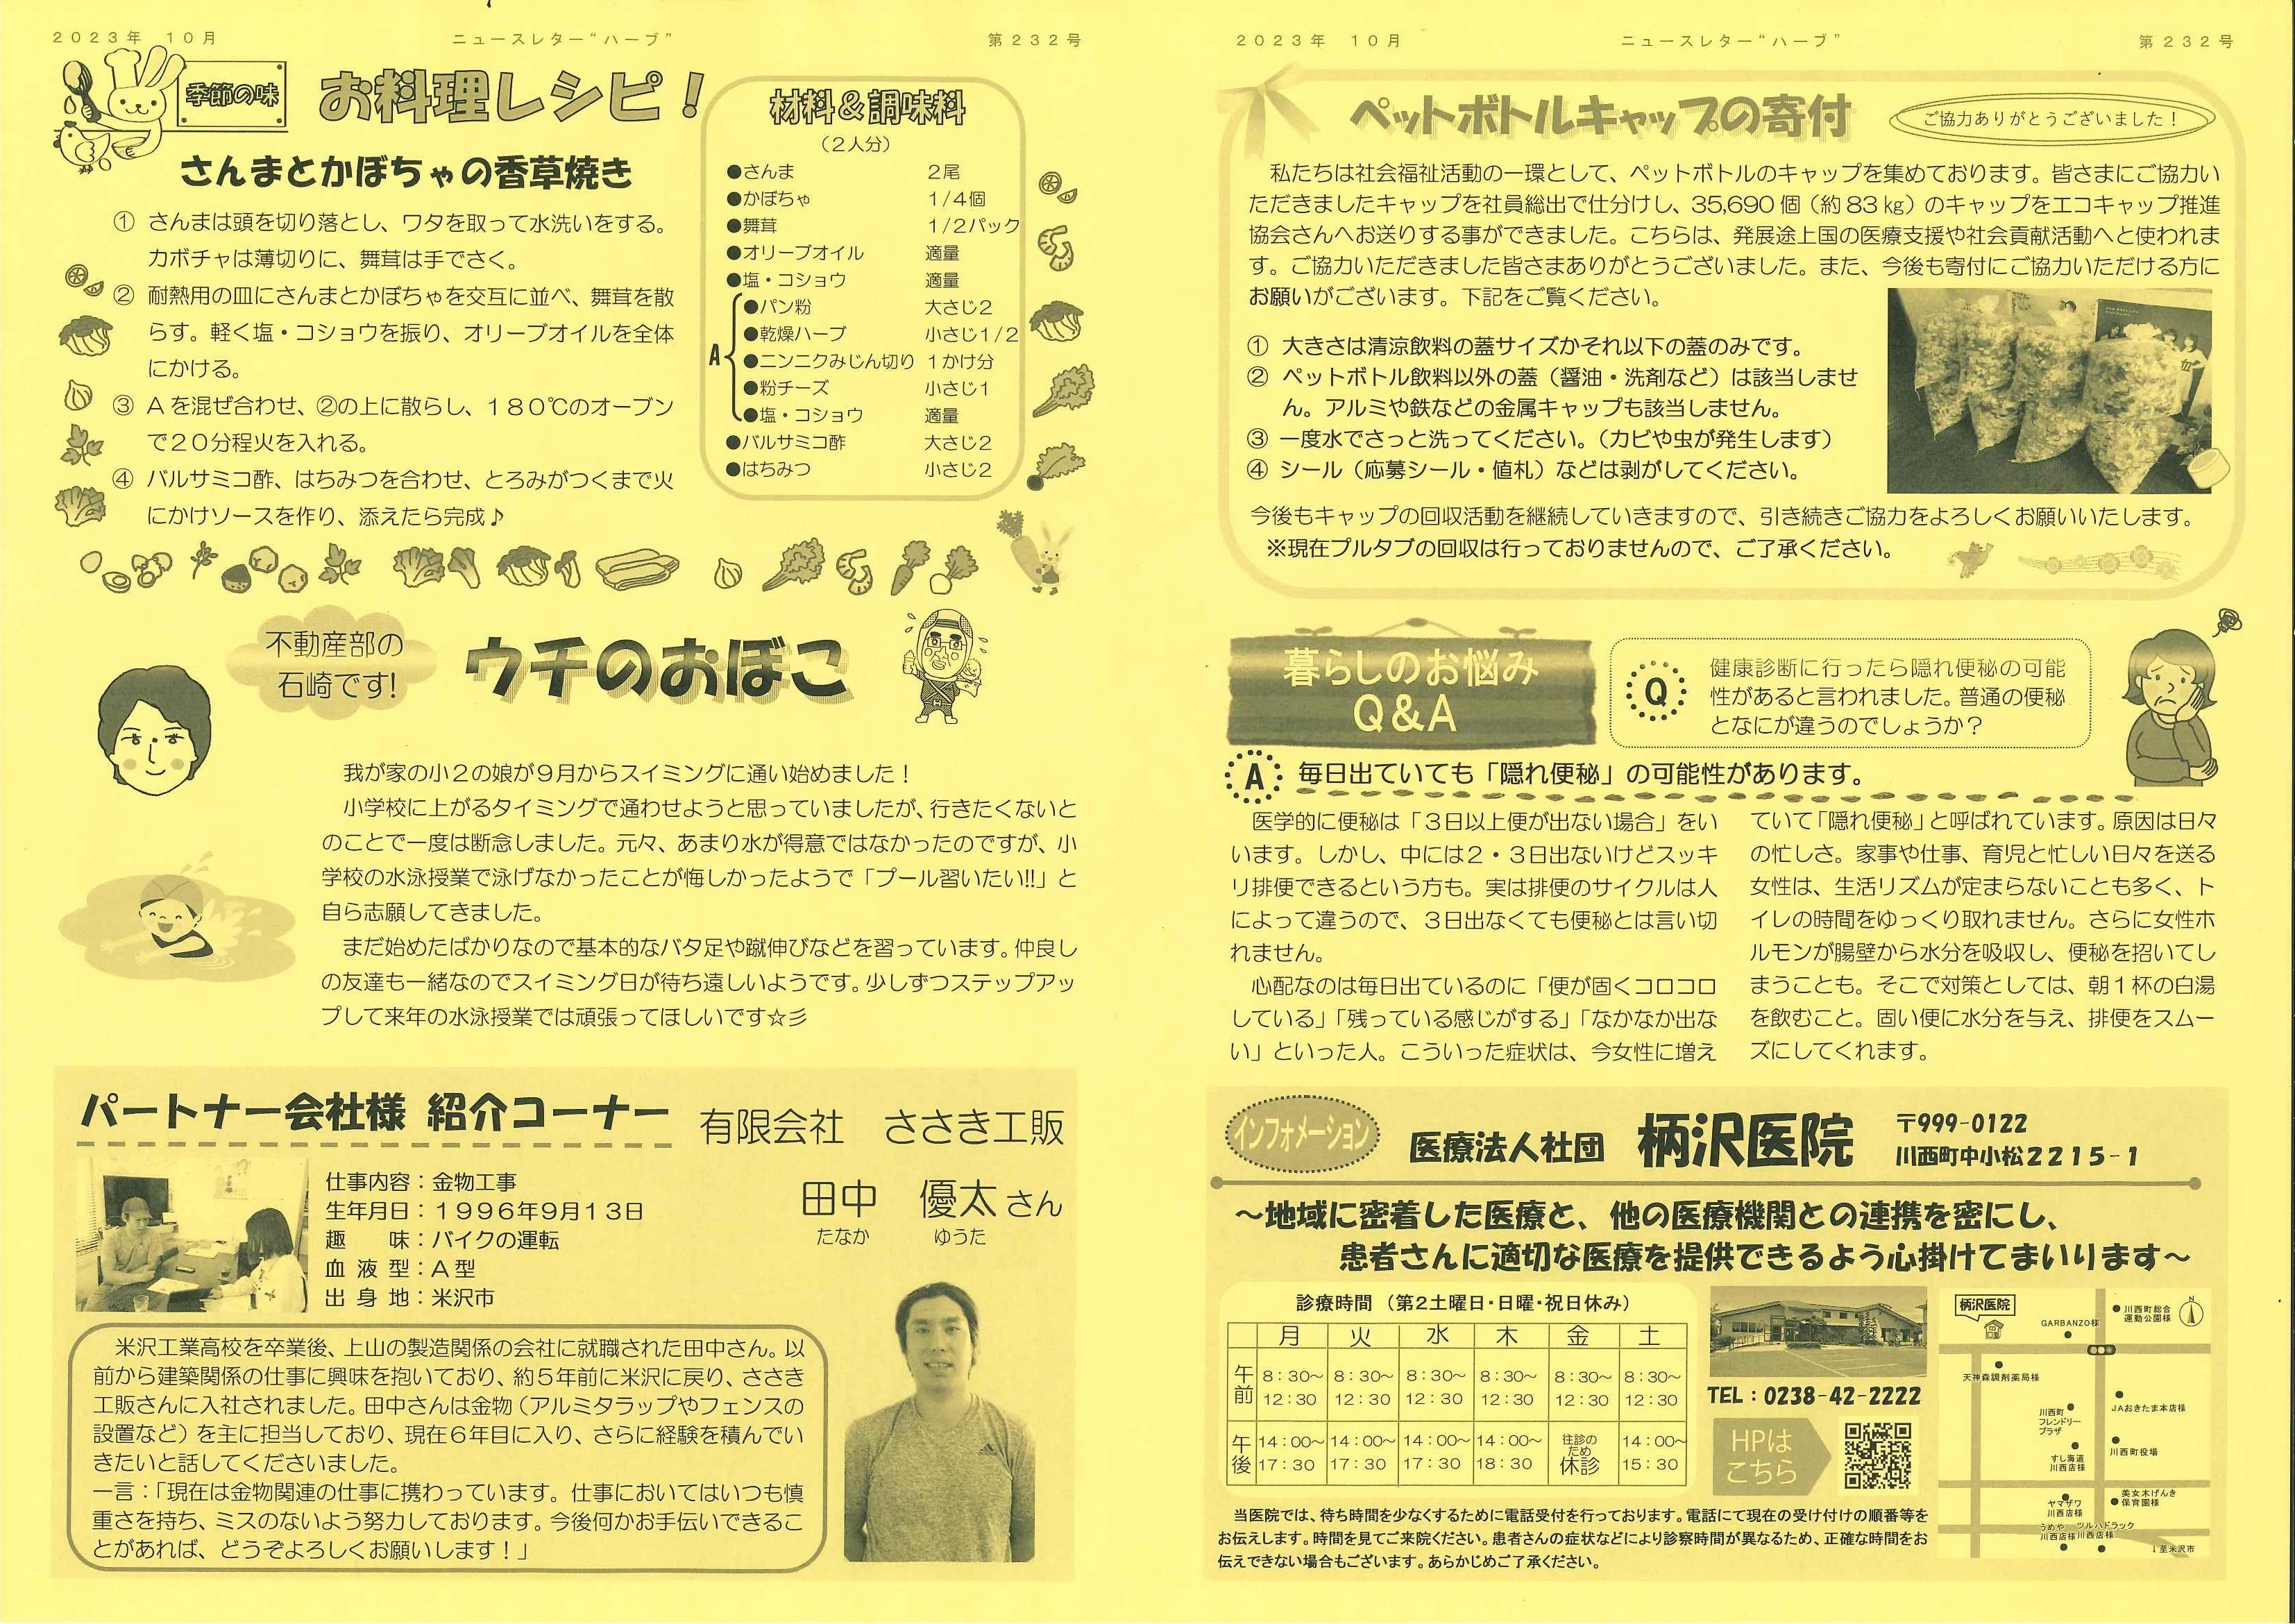 ２０２３年　１０月
ニュースレター“ハーブ”
第２３２号
季節の味
お料理レシピ！
さんまとかぼちゃの香草焼き
① さんまは頭を切り落とし、ワタを取って水洗いをする。
カボチャは薄切りに、舞茸は手でさく。
② 耐熱用の皿にさんまとかぼちゃを交互に並べ、舞茸を散
らす。軽く塩・コショウを振り、オリーブオイルを全体
にかける。
③ Ａを混ぜ合わせ、②の上に散らし、１８０℃のオーブン
で２０分程火を入れる。
④ バルサミコ酢、はちみつを合わせ、とろみがつくまで火
にかけソースを作り、添えたら完成♪
材料＆調味料
（２人分）
●さんま　２尾
●かぼちゃ　１/４個
●舞茸　１/２パック
●オリーブオイル　適量
●塩・コショウ　適量
●パン粉　大さじ２
●乾燥ハーブ　小さじ１/２
A
●ニンニクみじん切り　１かけ分
●粉チーズ　小さじ１
●塩・コショウ　適量
●バルサミコ酢　大さじ２
●はちみつ　小さじ２
不動産部の
石崎です!
ウチのおぼこ
我が家の小２の娘が９月からスイミングに通い始めました！
小学校に上がるタイミングで通わせようと思っていましたが、行きたくないと
のことで一度は断念しました。元々、あまり水が得意ではなかったのですが、小
学校の水泳授業で泳げなかったことが悔しかったようで「プール習いたい!!」と
自ら志願してきました。
まだ始めたばかりなので基本的なバタ足や蹴伸びなどを習っています。仲良し
の友達も一緒なのでスイミング日が待ち遠しいようです。少しずつステップアッ
プして来年の水泳授業では頑張ってほしいです☆彡
パートナー会社様 紹介コーナー
有限会社　ささき工販
仕事内容：金物工事
生年月日：１９９６年９月１３日
趣　　味：バイクの運転
血 液 型：Ａ型
出 身 地：米沢市
田中　優太さん
たなか　ゆうた
米沢工業高校を卒業後、上山の製造関係の会社に就職された田中さん。以
前から建築関係の仕事に興味を抱いており、約５年前に米沢に戻り、ささき
工販さんに入社されました。田中さんは金物（アルミタラップやフェンスの
設置など）を主に担当しており、現在６年目に入り、さらに経験を積んでい
きたいと話してくださいました。
一言：「現在は金物関連の仕事に携わっています。仕事においてはいつも慎
重さを持ち、ミスのないよう努力しております。今後何かお手伝いできるこ
とがあれば、どうぞよろしくお願いします！」
２０２３年　１０月
ニュースレター“ハーブ”
第２３２号
ペットボトルキャップの寄付
ご協力ありがとうございました！
私たちは社会福祉活動の一環として、ペットボトルのキャップを集めております。皆さまにご協力い
ただきましたキャップを社員総出で仕分けし、35,690 個（約 83 ㎏）のキャップをエコキャップ推進
協会さんへお送りする事ができました。こちらは、発展途上国の医療支援や社会貢献活動へと使われま
す。ご協力いただきました皆さまありがとうございました。また、今後も寄付にご協力いただける方に
お願いがございます。下記をご覧ください。
① 大きさは清涼飲料の蓋サイズかそれ以下の蓋のみです。
② ペットボトル飲料以外の蓋（醤油・洗剤など）は該当しませ
ん。アルミや鉄などの金属キャップも該当しません。
③ 一度水でさっと洗ってください。（カビや虫が発生します）
④ シール（応募シール・値札）などは剥がしてください。
今後もキャップの回収活動を継続していきますので、引き続きご協力をよろしくお願いいたします。
※現在プルタブの回収は行っておりませんので、ご了承ください。
暮らしのお悩み
Q＆A
Q
健康診断に行ったら隠れ便秘の可能
性があると言われました。普通の便秘
となにが違うのでしょうか？
A 毎日出ていても「隠れ便秘」の可能性があります。
医学的に便秘は「３日以上便が出ない場合」をい
います。しかし、中には２・３日出ないけどスッキ
リ排便できるという方も。実は排便のサイクルは人
によって違うので、３日出なくても便秘とは言い切
れません。
心配なのは毎日出ているのに「便が固くコロコロ
している」「残っている感じがする」「なかなか出な
い」といった人。こういった症状は、今女性に増え
ていて「隠れ便秘」と呼ばれています。原因は日々
の忙しさ。家事や仕事、育児と忙しい日々を送る
女性は、生活リズムが定まらないことも多く、ト
イレの時間をゆっくり取れません。さらに女性ホ
ルモンが腸壁から水分を吸収し、便秘を招いてし
まうことも。そこで対策としては、朝１杯の白湯
を飲むこと。固い便に水分を与え、排便をスムー
ズにしてくれます。
インフォメーション
医療法人社団　柄沢医院
〒999-0122
川西町中小松２２１５-１
～地域に密着した医療と、他の医療機関との連携を密にし、
患者さんに適切な医療を提供できるよう心掛けてまいります～
診療時間（第２土曜日・日曜・祝日休み）
月　火　水　木　金　土
午前　8：30～12：30　8：30～12：30　8：30～12：30　8：30～12：30　8：30～12：30　8：30～12：30
午後　14：00～17：30　14：00～17：30　14：00～17：30　14：00～18：30　往診のため休診　14：00～15：30
TEL：0238-42-2222
HPは
こちら
柄沢医院
GARBANZO様
川西町総合
運動公園様
N
天神森調剤薬局様
川西町
フレンドリー
プラザ
JAおきたま本店様
すし海道
川西店様
川西町役場
ヤマザワ
川西店様
美女木げんき
保育園様
うめや
川西店様
ツルハドラッグ
川西店様
↓至米沢市
当医院では、待ち時間を少なくするために電話受付を行っております。電話にて現在の受け付けの順番等を
お伝えします。時間を見てご来院ください。患者さんの症状などにより診察時間が異なるため、正確な時間をお
伝えできない場合もございます。あらかじめご了承ください。